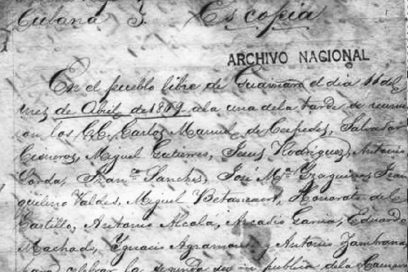 Cubana 3. Es copia
ARCHIVO NACIONAL
En el pueblo libre de Guaimaro el dia 11 del
mes de Abil de 1869 a la una de la tarde se reunie
ron los CC. Carlos Manuel de Cespedes, Salvador
Cisneros, Miguel Gutierres, Jesus Rodriguez, Antonio
Lorda, Franco Sanchez, José Ma Izaguirre, Tran
quilino Valdes, Miguel Betancourt, Honorato del
Castillo, Antonio Alcala, Arcadio Garcia, Eduardo
Machado, Ignacio Agramonte, Antonio Zambrana
para celebrar la segunda sesion publica de la Camara